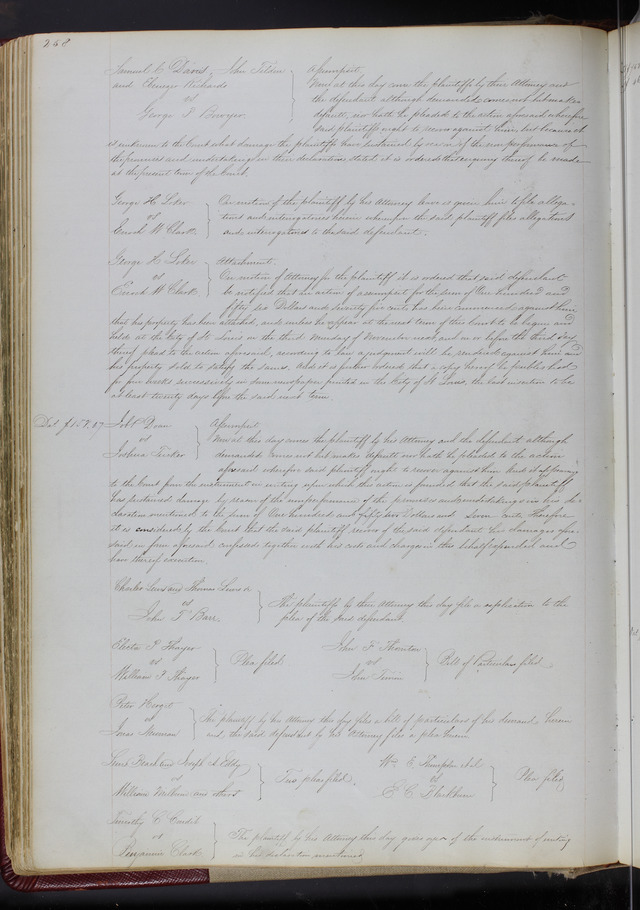 258
Samuel C Davis, John Tilden } Assumpsit.
and Ebenezer Richards Now at this day come the plaintiffs by their Attorney and
vs the defendant although demanded comes not but makes
George F Bowyer default, nor hath he pleaded to the action aforesaid wherefore
said plaintiffs ought to recover against him, but because it
is unknown to the Court what damage the plaintiffs have sustained by reason of the non performance of
the promises and undertakings in their declaration stated it is ordered that enquiry thereof be made
at the present term of the Court.
George H. } On motion of the plaintiff by his Attorney leave is given him to file allega-
vs tions and interrogatories herein whereupon the said plaintiff files allegations
Enoch W Clark and interrogatories to the said defendant.
George H. } Attachment.
vs On motion of Attorney for the plaintiff it is ordered that said defendant
Enoch W Clark be notified that an action of assumpsit for the sum of One hundred and
fifty six Dollars and seventy five cents has been commenced against him
that his property has been attached, and unless he appear at the next term of this Court to be begun and
held at the City of St Louis on the third Monday of November next, and on or before the third day
thereof plead to the action aforesaid, according to law a judgment will be rendered against him and
his property sold to satisfy the same. And it is further ordered that a copy hereof be published
for four weeks successively in some newspaper printed in the City of St Louis, the last insertion to be
at least twenty days before the said next term.
Job P Doan } Assumpsit
vs Now at this day comes the plaintiff by his Attorney and the defendant although
Joshua Tucker demanded comes not but makes default nor hath he pleaded to the action
aforesaid wherefore said plaintiff ought to recover against him. And it appearing
to the Court from the instrument in writing upon which the action is founded that the said plaintiff
has sustained damage by reason of the nonperformance of the promises and undertakings in his de-
claration mentioned to the sum of One hundred and fifty seven Dollars and seven cents. Therefore
it is considered by the Court that the said plaintiff recover of the said defendant his damages afore-
said in form aforesaid confessed together with his costs and charges in this behalf expended and
have thereof execution.
Charles and Thomas } The plaintiffs by their Attorney this day file a replication to the
vs plea of the said defendant.
John T Barr.
P Thayer } Plea filed. John F Thornton } Bill of Particulars filed
vs vs
William F Thayer John
Peter } The plaintiff by his Attorney this day files a bill of particulars of his demand herein
vs and the said defendant by his Attorney files a plea herein
Jonas Newman
Lewis Beach and Joseph S Eddy } Two pleas filed. Wm E Thompson } Plea filed
vs vs
William and others E. C. Blackburn
Timothy } The plaintiff by his Attorney this day gives oyer of the instrument of writing
vs in his declaration mentioned
Benjamin Clark